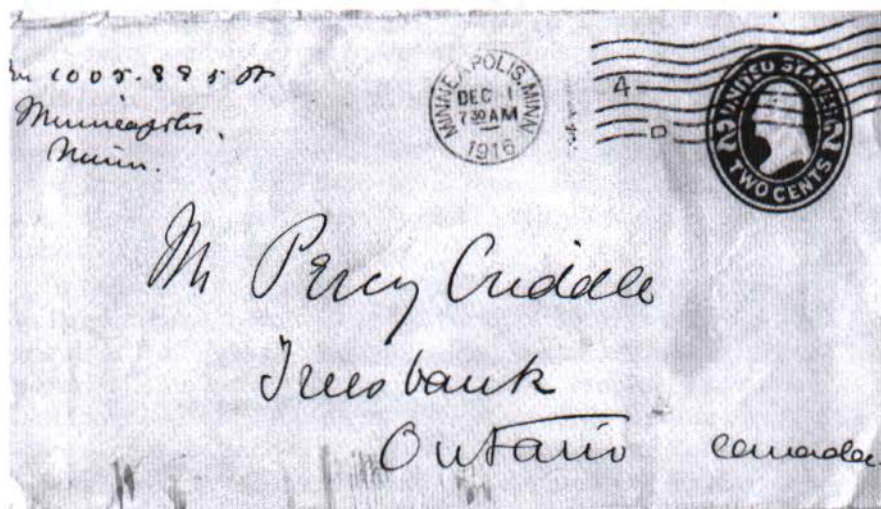 Minneapolis.
Minn.
MINNEAPOLIS, MINN
DEC 1
7 30 AM
1916
4
UNITED STATES
2 2
TWO CENTS
Mr Percy Criddle
Treesbank
Ontario Canada